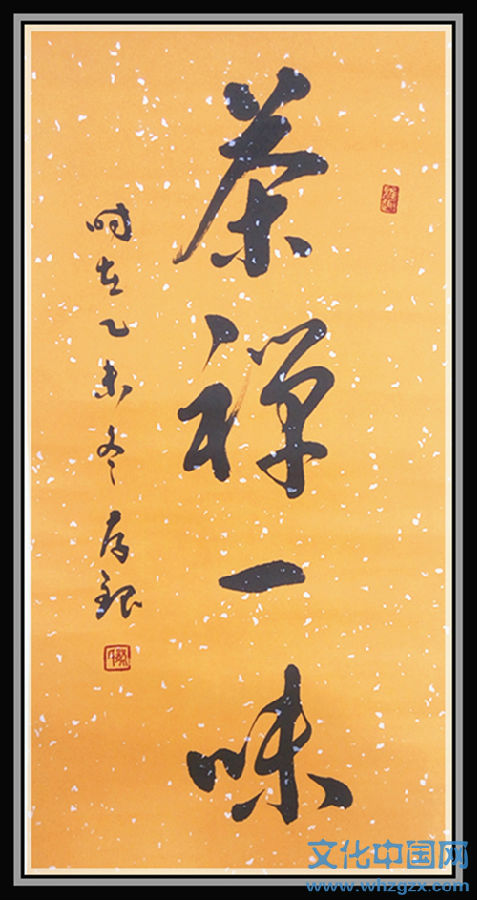 茶禅一味
时在乙未冬存银
文化中国网
www.whzgzx.com